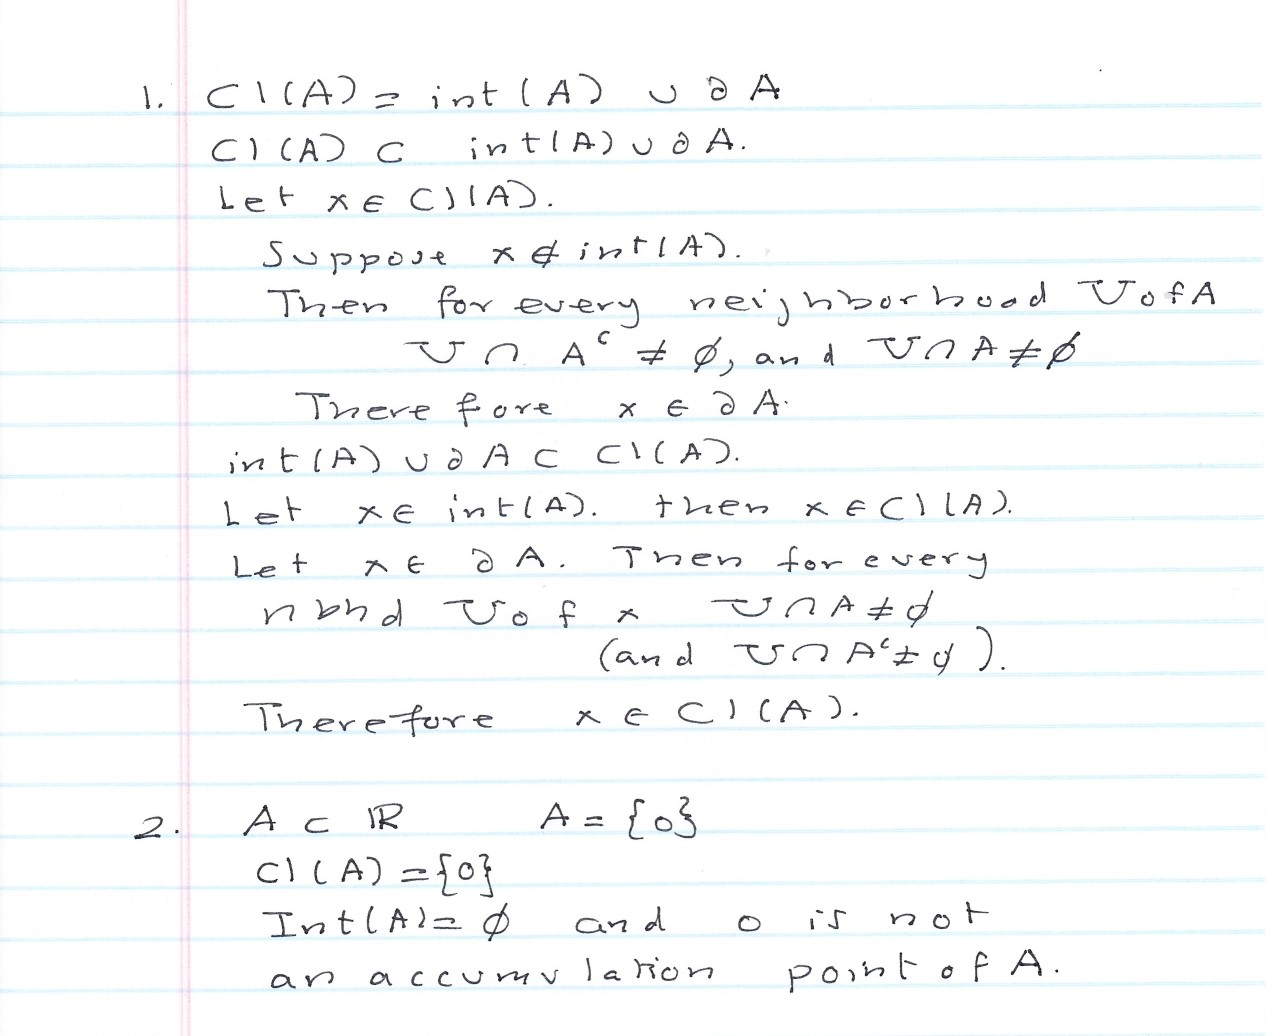 1. Cl(A) = int(A) ∪ ∂A
Cl(A) ⊂ int(A) ∪ ∂A.
Let x ∈ Cl(A).
Suppose x ∉ int(A).
Then for every neighborhood U of A
U ∩ Aᶜ ≠ ∅, and U ∩ A ≠ ∅
Therefore x ∈ ∂A.
int(A) ∪ ∂A ⊂ Cl(A).
Let x ∈ int(A). then x ∈ Cl(A).
Let x ∈ ∂A. Then for every
nbhd U of x U ∩ A ≠ ∅
(and U ∩ Aᶜ ≠ ∅).
Therefore x ∈ Cl(A).
2. A ⊂ ℝ A = {0}
Cl(A) = {0}
Int(A) = ∅ and 0 is not
an accumulation point of A.